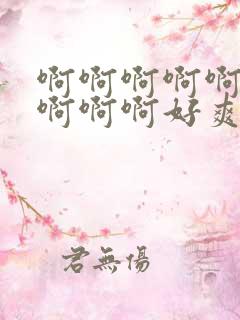 啊啊啊啊啊
啊啊啊好爽
君無傷